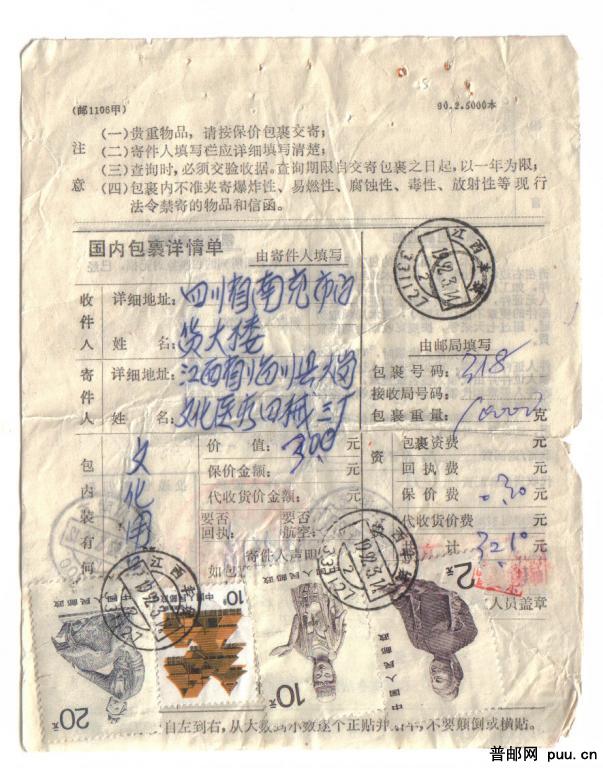 (邮1106甲) 90.2.5000本
注意
(一)贵重物品,请按保价包裹交寄;
(二)寄件人填写栏应详细填写清楚;
(三)查询时,必须交验收据。查询期限自交寄包裹之日起,以一年为限;
(四)包裹内不准夹寄爆炸性、易燃性、腐蚀性、毒性、放射性等现行
法令禁寄的物品和信函。
国内包裹详情单 由寄件人填写
收件人 详细地址:四川省南充市百
姓名:货大楼
寄件人 详细地址:江西省临川县大岗
姓名:文化医疗四械三厂
由邮局填写
包裹号码:318
接收局号码:
包裹重量:10000克
包内装有何
文化用
价值:300元
保价金额:元
代收货价金额:元
要否回执: 要否航空:
寄件人声明
如包
资
包裹资费 元
回执费 元
保价费 0.30元
代收货价费 元
计 32.10元
人员盖章
江西
1992.3.14
2
331127
20元
中国人民邮政
10
中国人民邮政
10元
2元
中国人民邮政
自左到右,从大数到小数逐个正贴并 不要颠倒或横贴。
普邮网 puu.cn